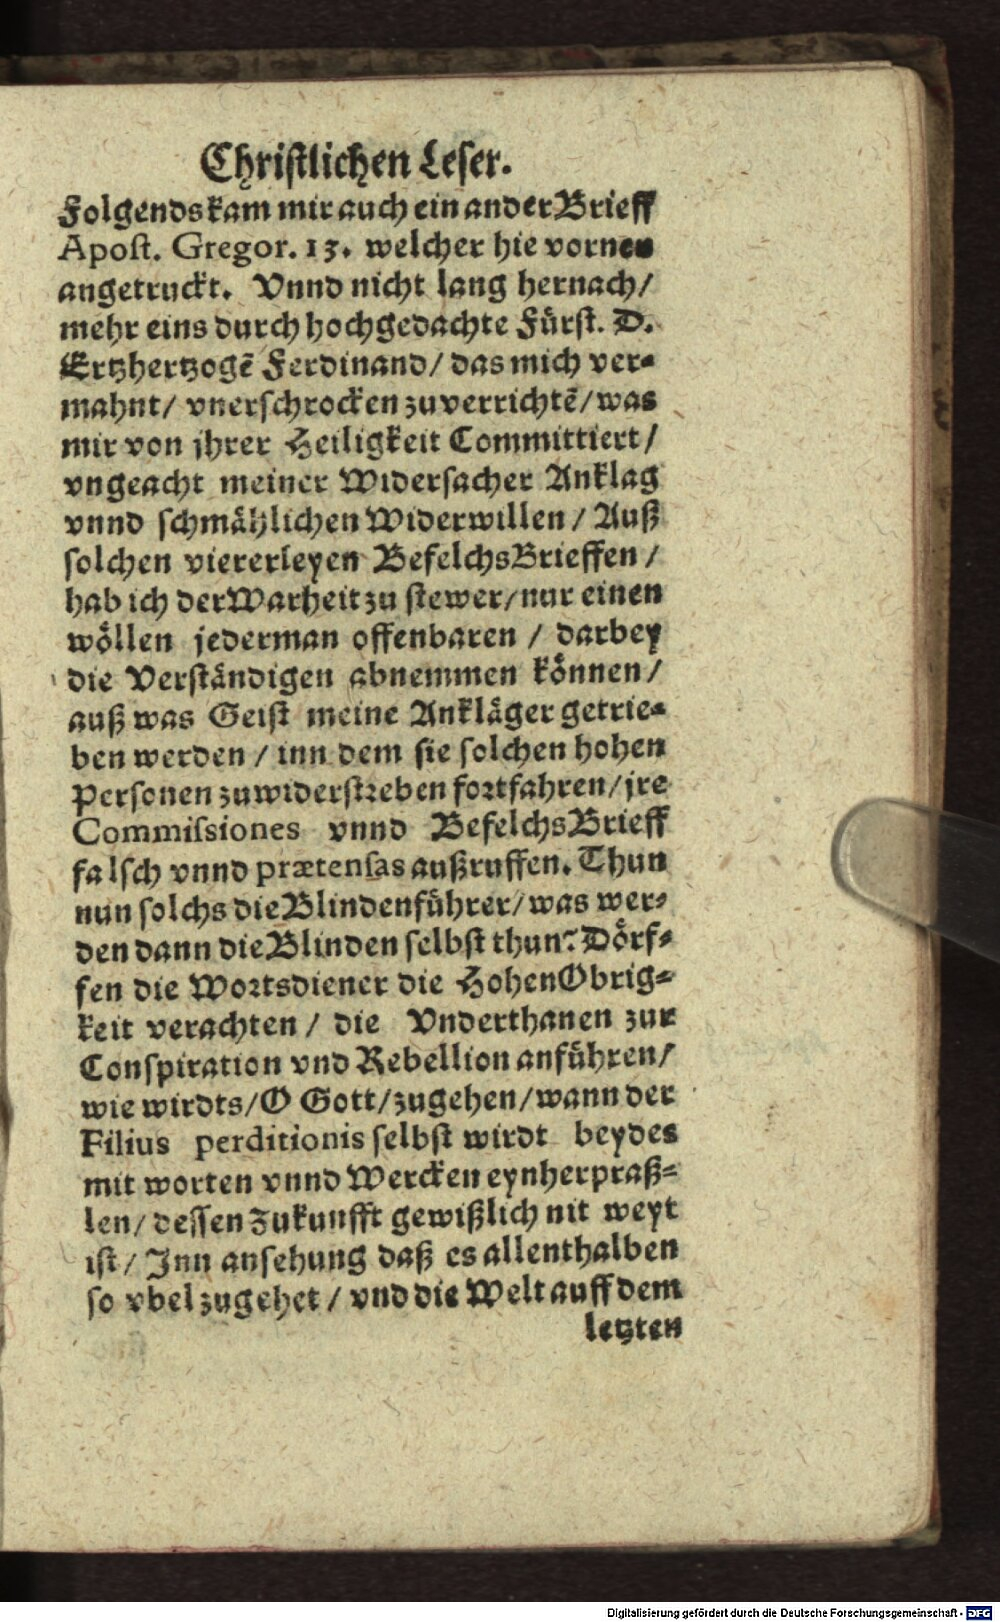 Christlichen Leser.
Folgends kam mir auch ein ander Brieff
Apost. Gregor. 13. welcher hie vornen
angetruckt. Vnnd nicht lang hernach/
mehr eins durch hochgedachte Fürst. D.
Ertzhertzogẽ Ferdinand/ das mich ver-
mahnt/ vnerschrocken zuverrichtẽ/ was
mir von jhrer Heiligkeit Committiert/
vngeacht meiner Widersacher Anklag
vnnd schmählichen Widerwillen / Auß
solchen viererleyen BefelchsBrieffen /
hab ich der Warheit zu stewer/ nur einen
wöllen jederman offenbaren / darbey
die Verständigen abnemmen können/
auß was Geist meine Ankläger getrie-
ben werden / inn dem sie solchen hohen
Personen zuwiderstreben fortfahren/ jre
Commissiones vnnd BefelchsBrieff
falsch vnnd prætensas außruffen. Thun
nun solchs die Blindenführer/ was wer-
den dann die Blinden selbst thun? Dörf-
fen die Wortsdiener die HohenObrig-
keit verachten / die Vnderthanen zur
Conspiration vnd Rebellion anführen/
wie wirdts/ O Gott/ zugehen/ wann der
Filius perditionis selbst wirdt beydes
mit worten vnnd Wercken eynherpraß-
len/ dessen Zukunfft gewißlich nit weyt
ist/ Inn ansehung daß es allenthalben
so vbel zugehet / vnd die Welt auff dem
letzten
Digitalisierung gefördert durch die Deutsche Forschungsgemeinschaft - DFG